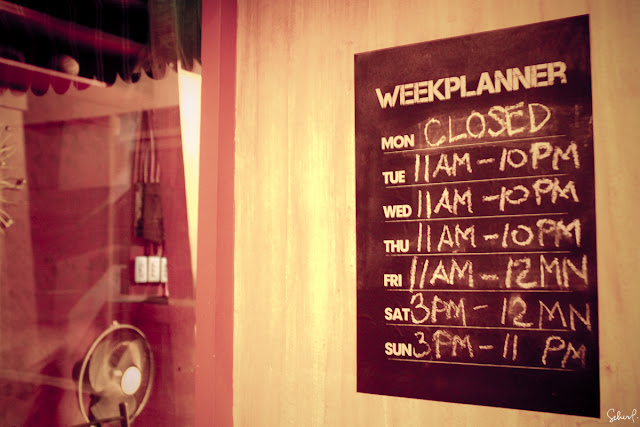 WEEKPLANNER
MON CLOSED
TUE 11AM - 10PM
WED 11AM - 10PM
THU 11AM - 10PM
FRI 11AM - 12MN
SAT 3PM - 12MN
SUN 3PM - 11 PM